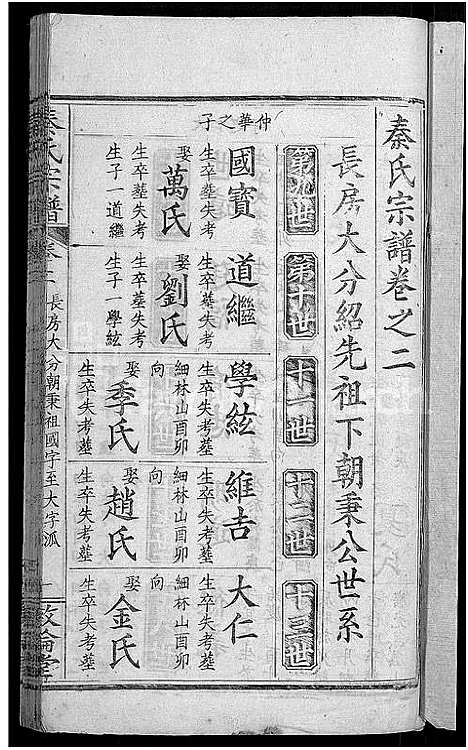 秦氏宗譜卷之二
長房大分紹先祖下朝秉公世系
第九世
第十世
十一世
十二世
十三世
仲華之子
國寳
生卒塟失考
娶萬氏
生卒塟失考
生子一道繼
道繼
生卒塟失考
娶劉氏
生卒塟失考
生子一學絃
學絃
生卒失考塟
細林山酉卯
向
娶季氏
生卒失考塟
維吉
生卒失考塟
細林山酉卯
向
娶趙氏
生卒失考塟
大仁
生卒失考塟
細林山酉卯
向
娶金氏
生卒失考塟
秦氏宗譜
卷二
長房大分朝秉祖國字至大字派
一
敦倫堂